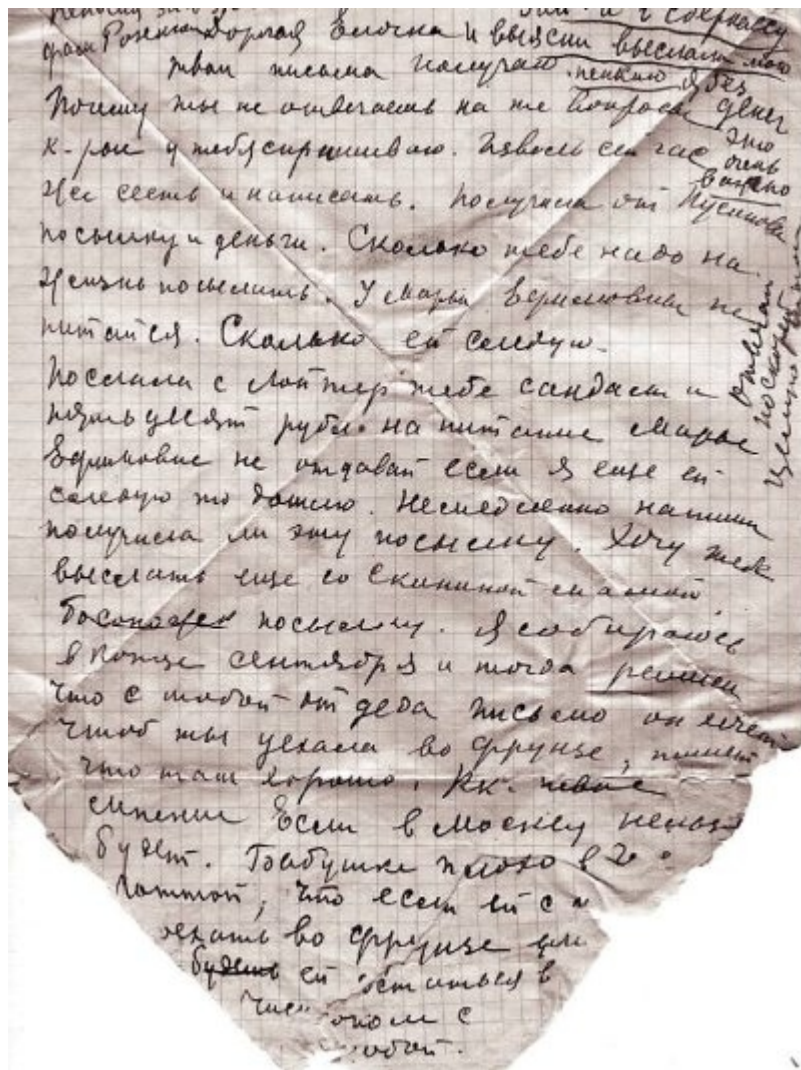 сберкассу
Дорогая Елочка и выясни выслали мою
твои письма получаю. пенсию я без
Почему ты не отвечаешь на те вопросы денег
к-рые у тебя спрашиваю. Изволь сейчас это очень
же сесть и написать. Получила от важно
посылку и деньги. Сколько тебе надо на
жизнь посылать. У Марьи Ефимовны не
питайся. Сколько ей следует
Послала с тебе сандали и
пятьдесят рубл. на питание Марье
Ефимовне не отдавай если я еще ей
следую то дошлю. Немедленно напиши
получила ли эту посылку. Хочу тебе
выслать еще со мамой
посылку. Я собираюсь
в конце сентября и тогда решим
что с тобой от деда письмо он хочет
чтоб ты уехала во Фрунзе, пишет
что там хорошо. твое
мнение Если в Москву нельзя
будет. Бабушке плохо в
что если ей с
ехать во Фрунзе или
будешь ей остаться в
с
тобой.
отвечай
поскорей